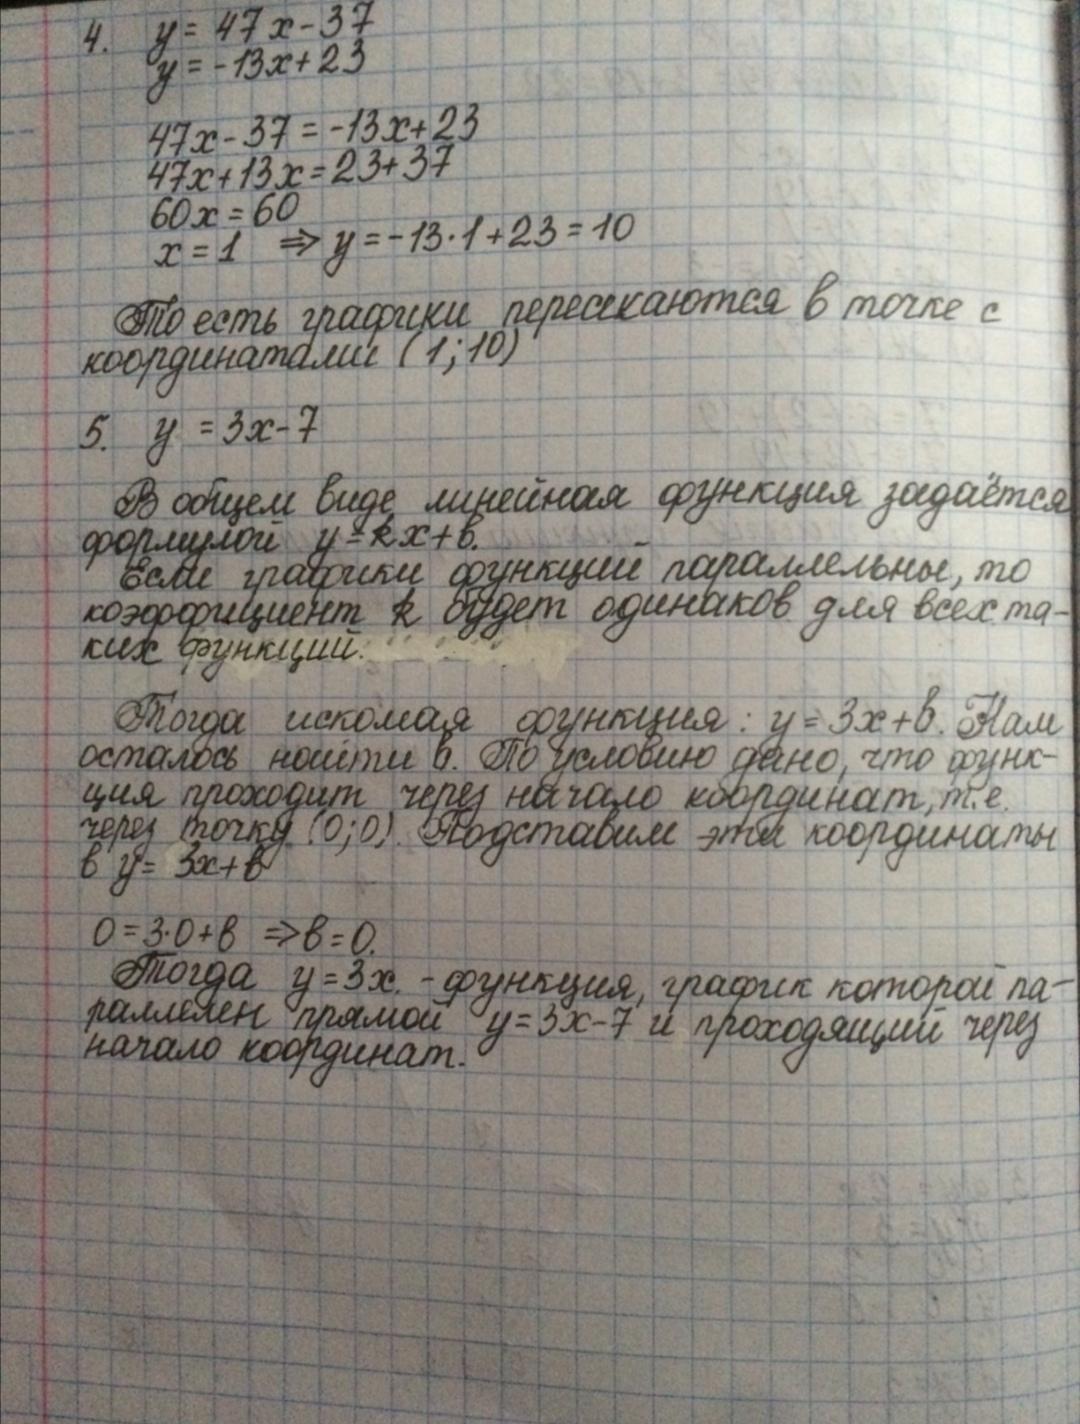 4. y = 47x - 37
y = -13x + 23
47x - 37 = -13x + 23
47x + 13x = 23 + 37
60x = 60
x = 1 ⇒ y = -13·1 + 23 = 10
То есть графики пересекаются в точке с
координатами (1; 10)
5. y = 3x - 7
В общем виде линейная функция задаётся
формулой y = kx + b.
Если графики функций параллельны, то
коэффициент k будет одинаков для всех та-
ких функций.
Тогда искомая функция: y = 3x + b. Нам
осталось найти b. По условию дано, что функ-
ция проходит через начало координат, т.е.
через точку (0; 0). Подставим эти координаты
в y = 3x + b
0 = 3·0 + b ⇒ b = 0.
Тогда y = 3x. - функция, график которой па-
раллелен прямой y = 3x - 7 и проходящий через
начало координат.